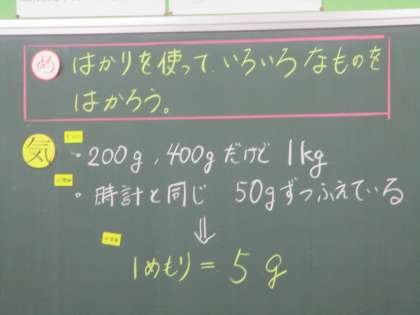 め はかりを使って、いろいろなものを
はかろう。
気 ・200g, 400gだけど 1kg
・時計と同じ 50gずつふえている
⇓
1めもり= 5g